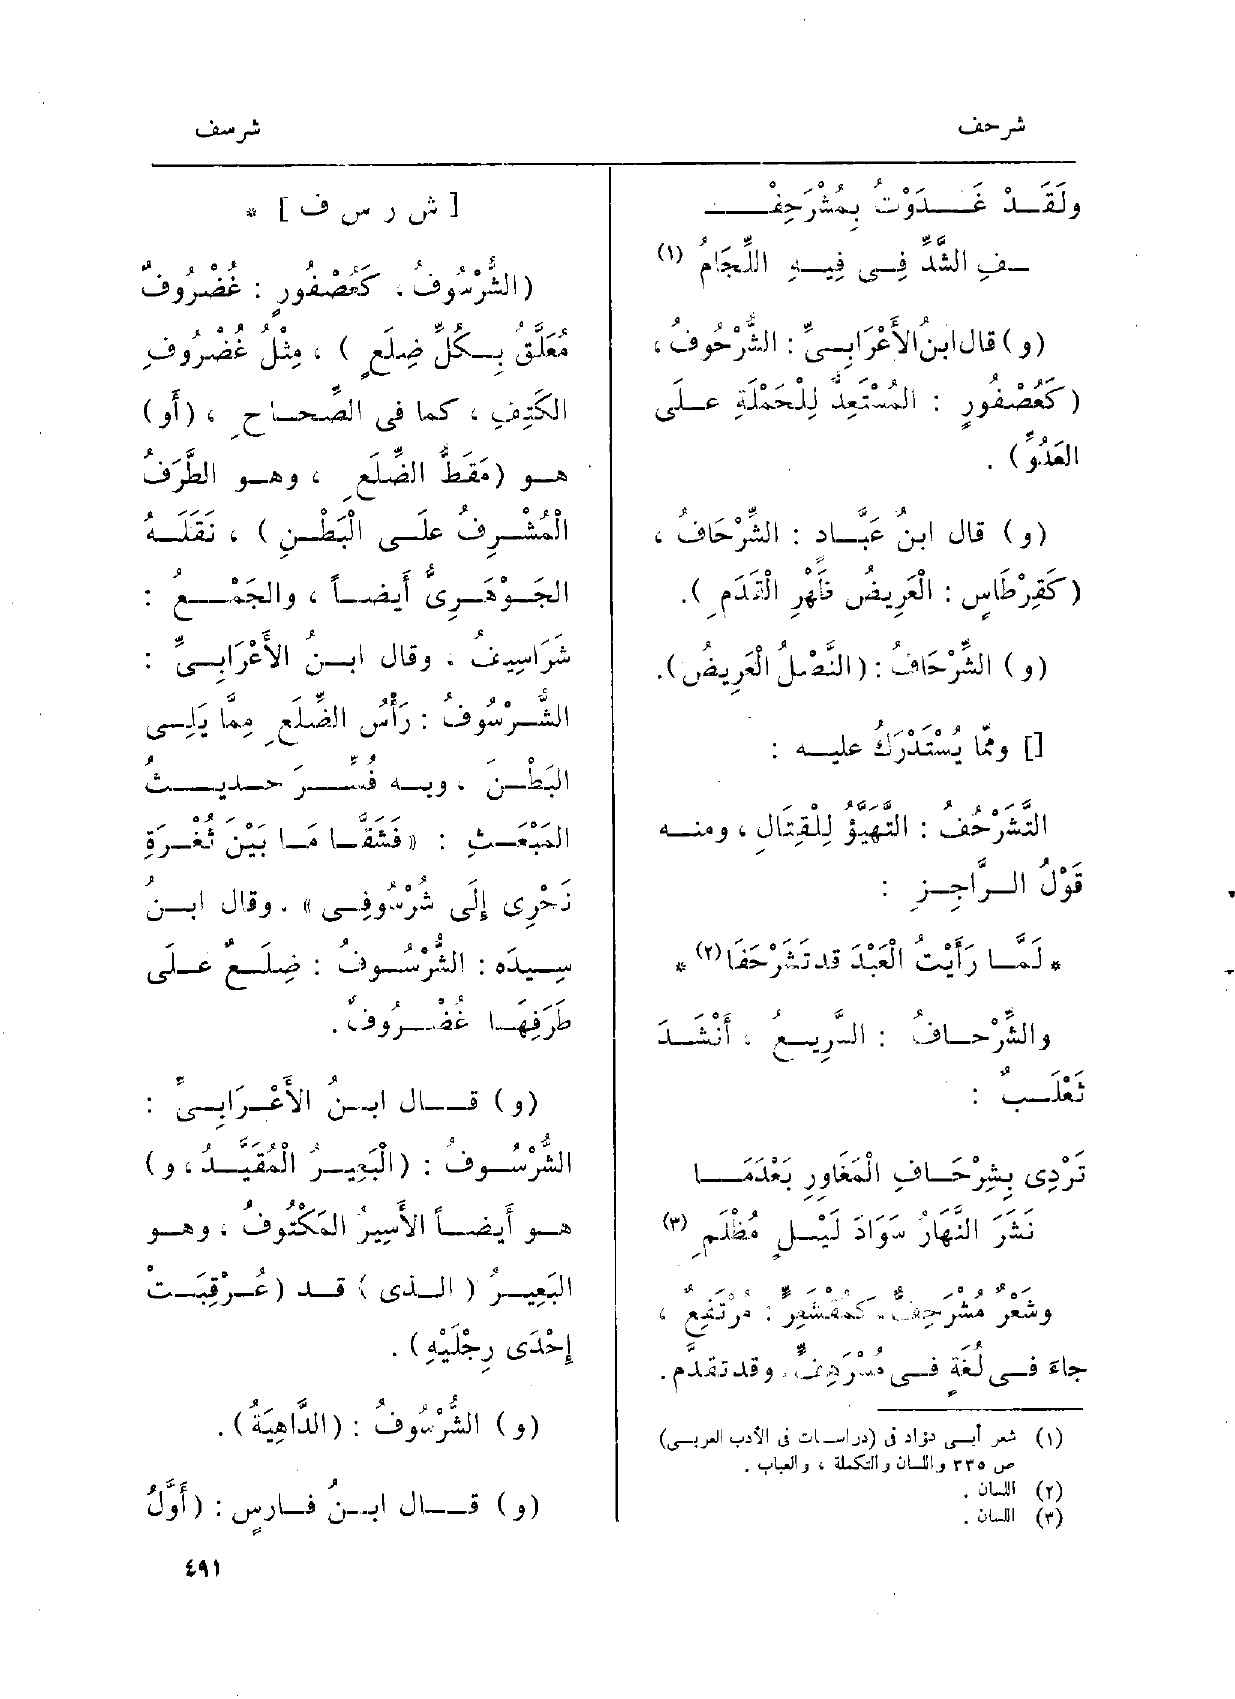 شرحف
شرسف
ولَقَدْ غَدَوْتُ بِمُشْرَحِفْـ
ـفِ الشَّدِّ فِى فِيهِ اللِّجَامُ (١)
(و) قال ابنُ الأَعْرَابِىِّ : الشُّرْحُوفُ ،
(كَعُصْفُورٍ : المُسْتَعِدُّ لِلْحَمْلَةِ على
العَدُوِّ) .
(و) قال ابنُ عَبَّاد : الشِّرْحَافُ ،
(كَقِرْطَاسٍ : الْعَرِيضُ ظَهْرِ الْقَدَمِ).
(و) الشِّرْحَافُ : (النَّصْلُ الْعَرِيضُ).
[] وممّا يُسْتَدْرَكُ عليه :
التَّشَرْحُفُ : التَّهَيُّؤُ لِلقِتَالِ ، ومنه
قَوْلُ الرَّاجِزِ :
* لَمَّا رَأَيْتُ الْعَبْدَ قد تَشَرْحَفَا (٢) *
والشِّرْحَافُ : السَّرِيعُ ، أَنْشَدَ
ثَعْلَبٌ :
تَرْدِى بِشِرْحَافِ الْمَغَاوِرِ بَعْدَمَا
نَشَرَ النَّهَارُ سَوَادَ لَيْلٍ مُظْلِمِ (٣)
وشَعْرٌ مُشْرَحِفٌّ ، كمُقْشَعِرٍّ : مُرْتَفِعٌ ،
جاءَ فى لُغَةٍ فى مُسْرَهِفٍّ ، وقد تقدَّم.
(١) شعر أبى دؤاد فى (دراسات فى الأدب العربى)
ص ٣٣٥ واللسان والتكملة ، والعباب .
(٢) اللسان .
(٣) اللسان .
[ ش ر س ف ] *
(الشُّرْسُوفُ ، كعُصْفُورٍ : غُضْرُوفٌ
مُعَلَّقٌ بِكُلِّ ضِلَعٍ ) ، مِثْلُ غُضْرُوفِ
الكَتِفِ ، كما فى الصِّحاحِ ، (أَو)
هو (مَقَطُّ الضِّلَعِ ، وهو الطَّرَفُ
الْمُشْرِفُ على الْبَطْنِ ) ، نَقَلَهُ
الجَوْهَرِىُّ أَيضاً ، والجَمْعُ :
شَرَاسِيفُ ، وقال ابنُ الأَعْرَابِىِّ :
الشُّرْسُوفُ : رَأْسُ الضِّلَعِ مِمَّا يَلِى
البَطْنَ ، وبه فُسِّرَ حديثُ
المَبْعَثِ : «فَشَقَّا مَا بَيْنَ ثُغْرَةِ
نَحْرِى إِلَى شُرْسُوفِى» . وقال ابنُ
سِيدَه : الشُّرْسُوفُ : ضِلَعٌ عَلَى
طَرَفِهَا غُضْرُوفٌ.
(و) قال ابنُ الأَعْرَابِىِّ :
الشُّرْسُوفُ : (الْبَعِيرُ الْمُقَيَّدُ ، و)
هو أَيضاً الأَسِيرُ المَكْتُوفُ ، وهو
البَعِيرُ ( الذى ) قد (عُرْقِبَتْ
إِحْدَى رِجْلَيْهِ) .
(و) الشُّرْسُوفُ : (الدَّاهِيَةُ).
(و) قال ابنُ فارسٍ : (أَوَّلُ
٤٩١